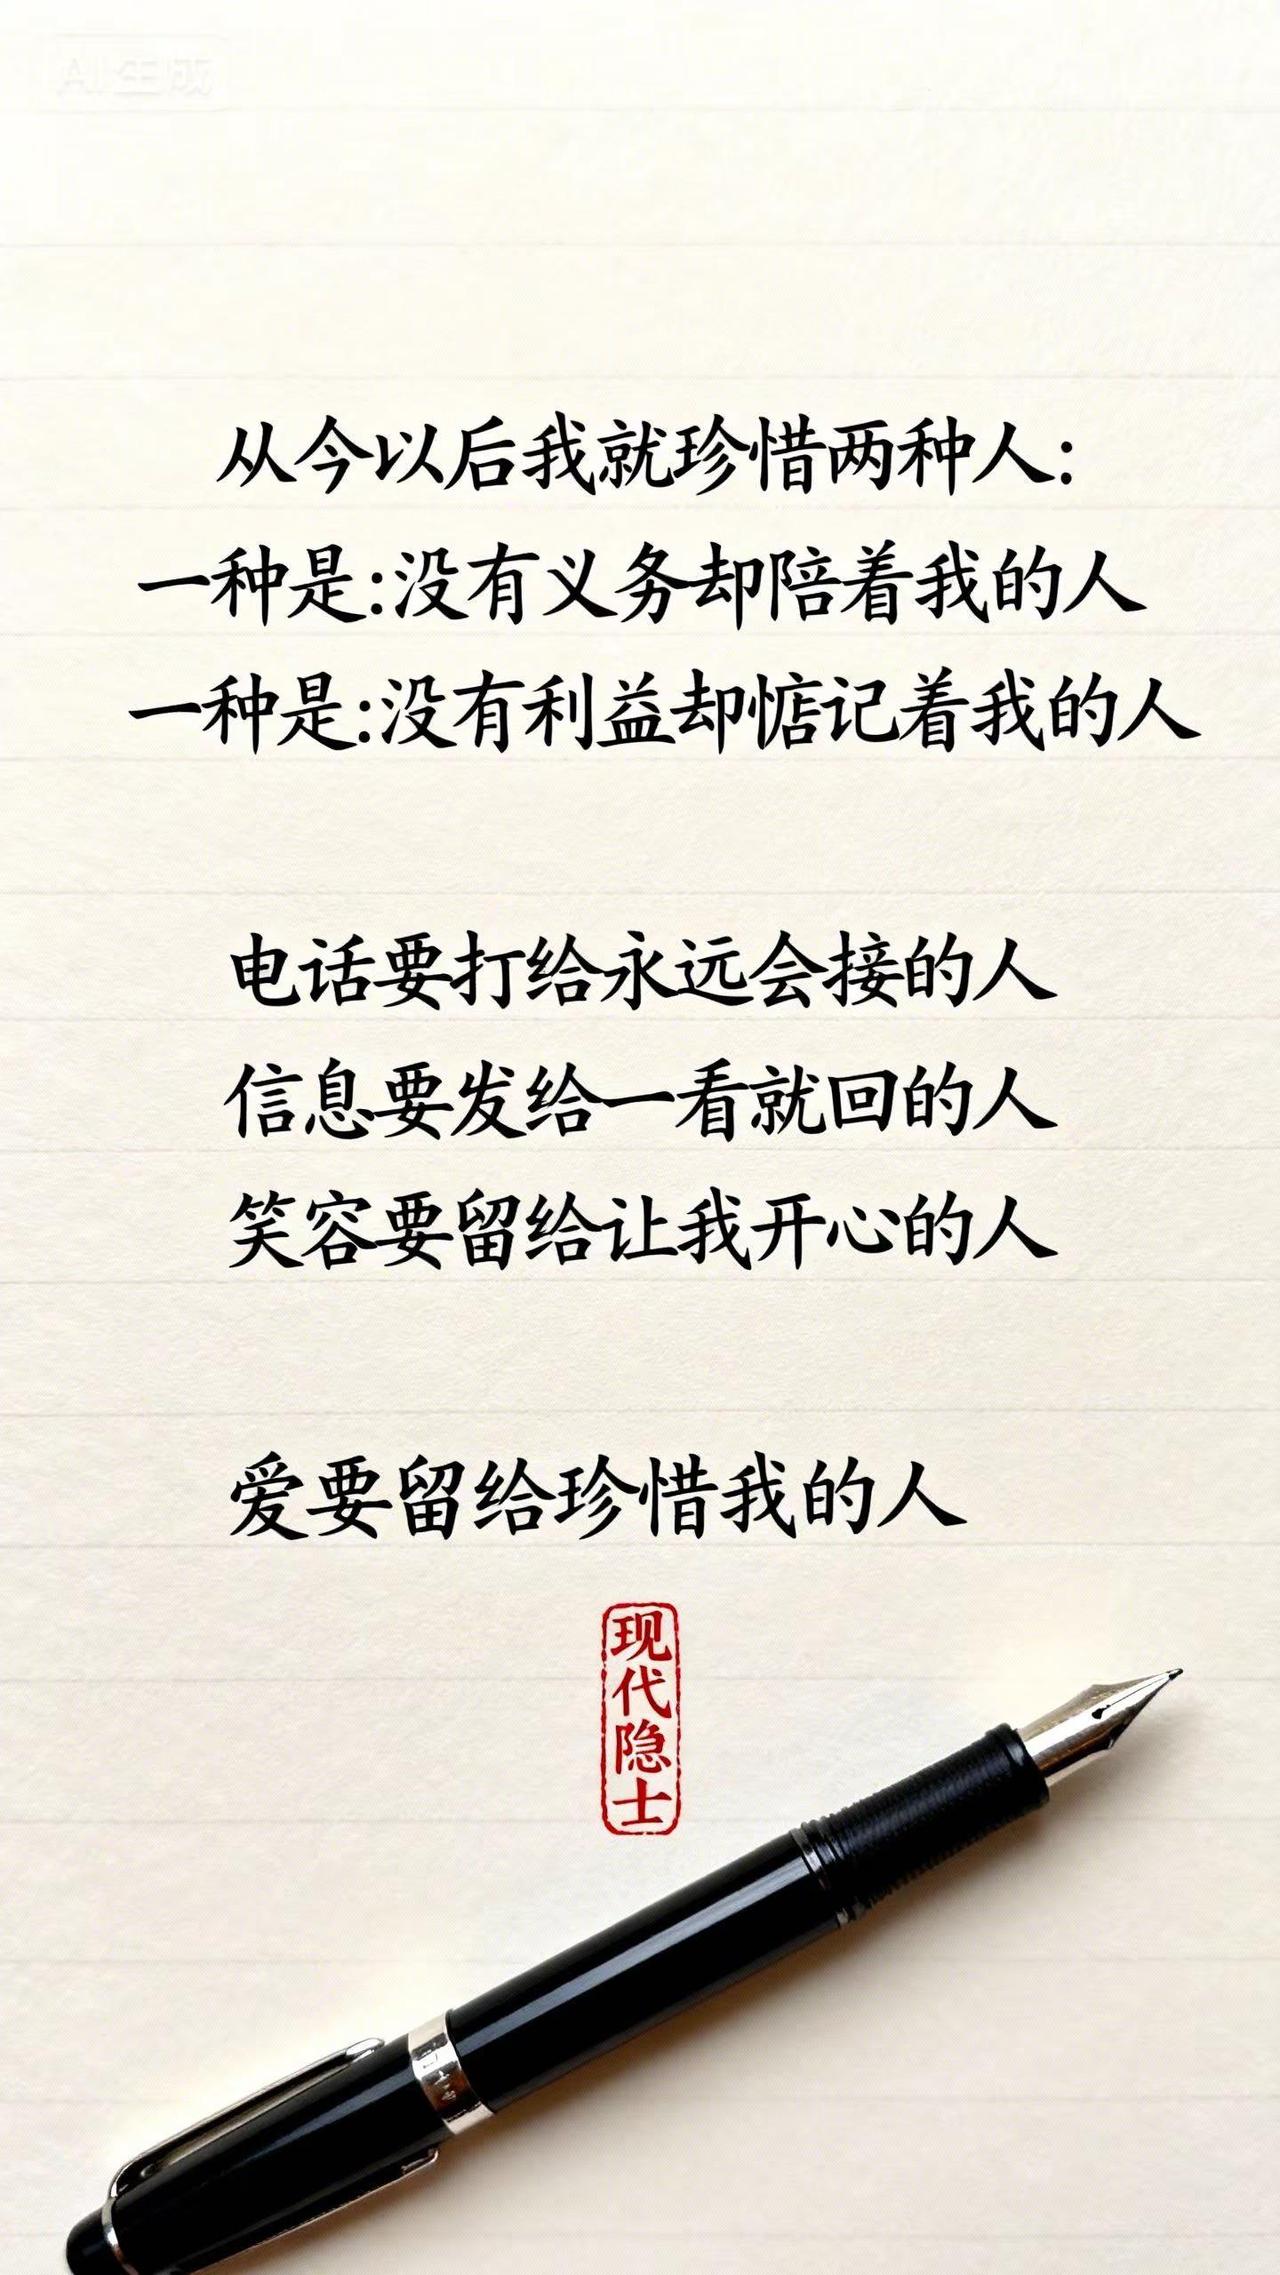 AI生成
从今以后我就珍惜两种人:
一种是:没有义务却陪着我的人
一种是:没有利益却惦记着我的人
电话要打给永远会接的人
信息要发给一看就回的人
笑容要留给让我开心的人
爱要留给珍惜我的人
现代隐士